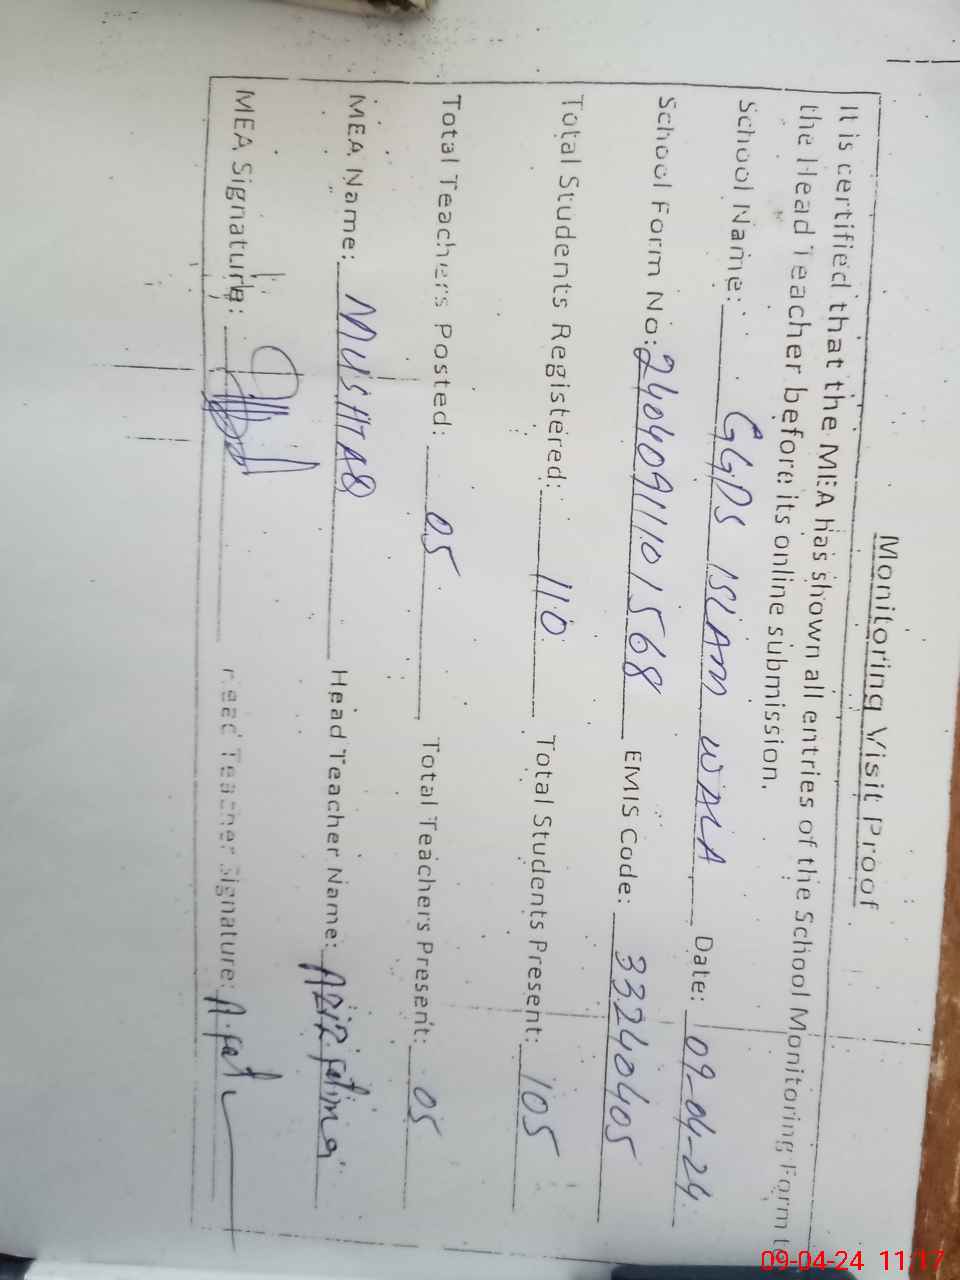 Monitoring Visit Proof
It is certified that the MEA has shown all entries of the School Monitoring Form to
the Head Teacher before its online submission.
School Name: GGPS ISLAM WALA Date: 09-04-24
School Form No: 24040911101568 EMIS Code: 33240405
Total Students Registered: 110 Total Students Present: 105
Total Teachers Posted: 05 Total Teachers Present: 05
MEA Name: MUSHTAQ Head Teacher Name: Fatima
MEA Signature: Head Teacher Signature: A. Fati
09-04-24 11:17